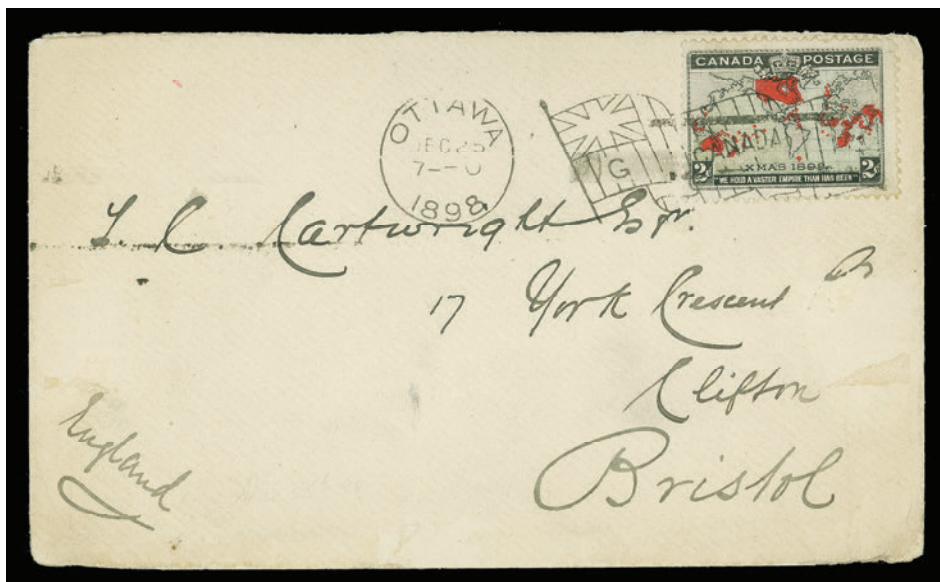 CANADA POSTAGE
XMAS 1898
2c 2c
"WE HOLD A VASTER EMPIRE THAN HAS BEEN"
OTTAWA
DEC 25
7-0
1898
G
CANADA
Cartwright Esqr.
17 York Crescent
Clifton
Bristol
England